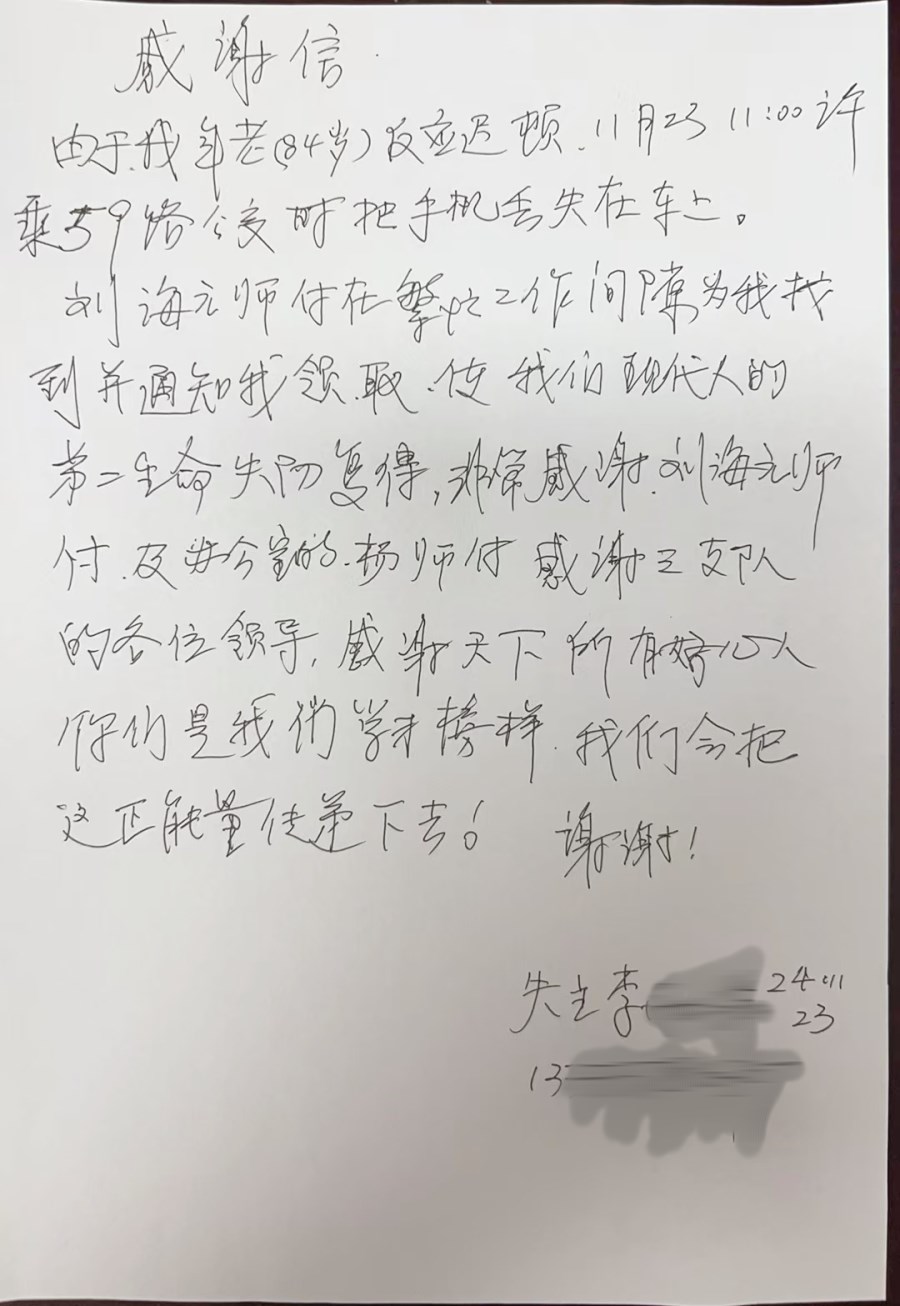 感谢信
由于我年老(84岁)反应迟顿.11月23 11:00许
乘59路公交时把手机丢失在车上。
刘海元师付在繁忙工作间隙为我找
到并通知我领取.使我们现代人的
第二生命失而复得,非常感谢.刘海元师
付.及办公室的.杨师付 感谢三支队
的各位领导,感谢天下所有好心人
你们是我们学习榜样.我们会把
这正能量传递下去! 谢谢!
失主李 24.11
23
13